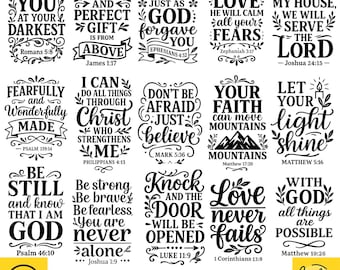 YOU
AT YOUR
DARKEST
Romans 5:8
AND
PERFECT
GIFT
IS FROM
ABOVE
James 1:17
JUST AS
GOD
forgave
YOU
EPHESIANS 4:32
LOVE
HE WILL CALM
ALL YOUR
FEARS
Zephaniah 3:17
MY HOUSE,
WE WILL
SERVE
THE
LORD
Joshua 24:15
FEARFULLY
and
Wonderfully
MADE
PSALM 139:14
I CAN
DO ALL THINGS
THROUGH
Christ
WHO
STRENGTHENS
ME
PHILIPPIANS 4:13
DON'T BE
AFRAID
JUST
believe
MARK 5:36
YOUR
FAITH
can move
MOUNTAINS
Matthew 17:20
LET
YOUR
light
shine
MATTHEW 5:16
BE
STILL
and know
THAT I AM
GOD
Psalm 46:10
Be strong
Be brave
Be fearless
You are
never
alone
Joshua 1:9
KNOCK
AND THE
DOOR
WILL BE
OPENED
LUKE 11:9
Love
never
fails
1 Corinthians 13:8
WITH
GOD
all things
ARE
POSSIBLE
Matthew 19:26